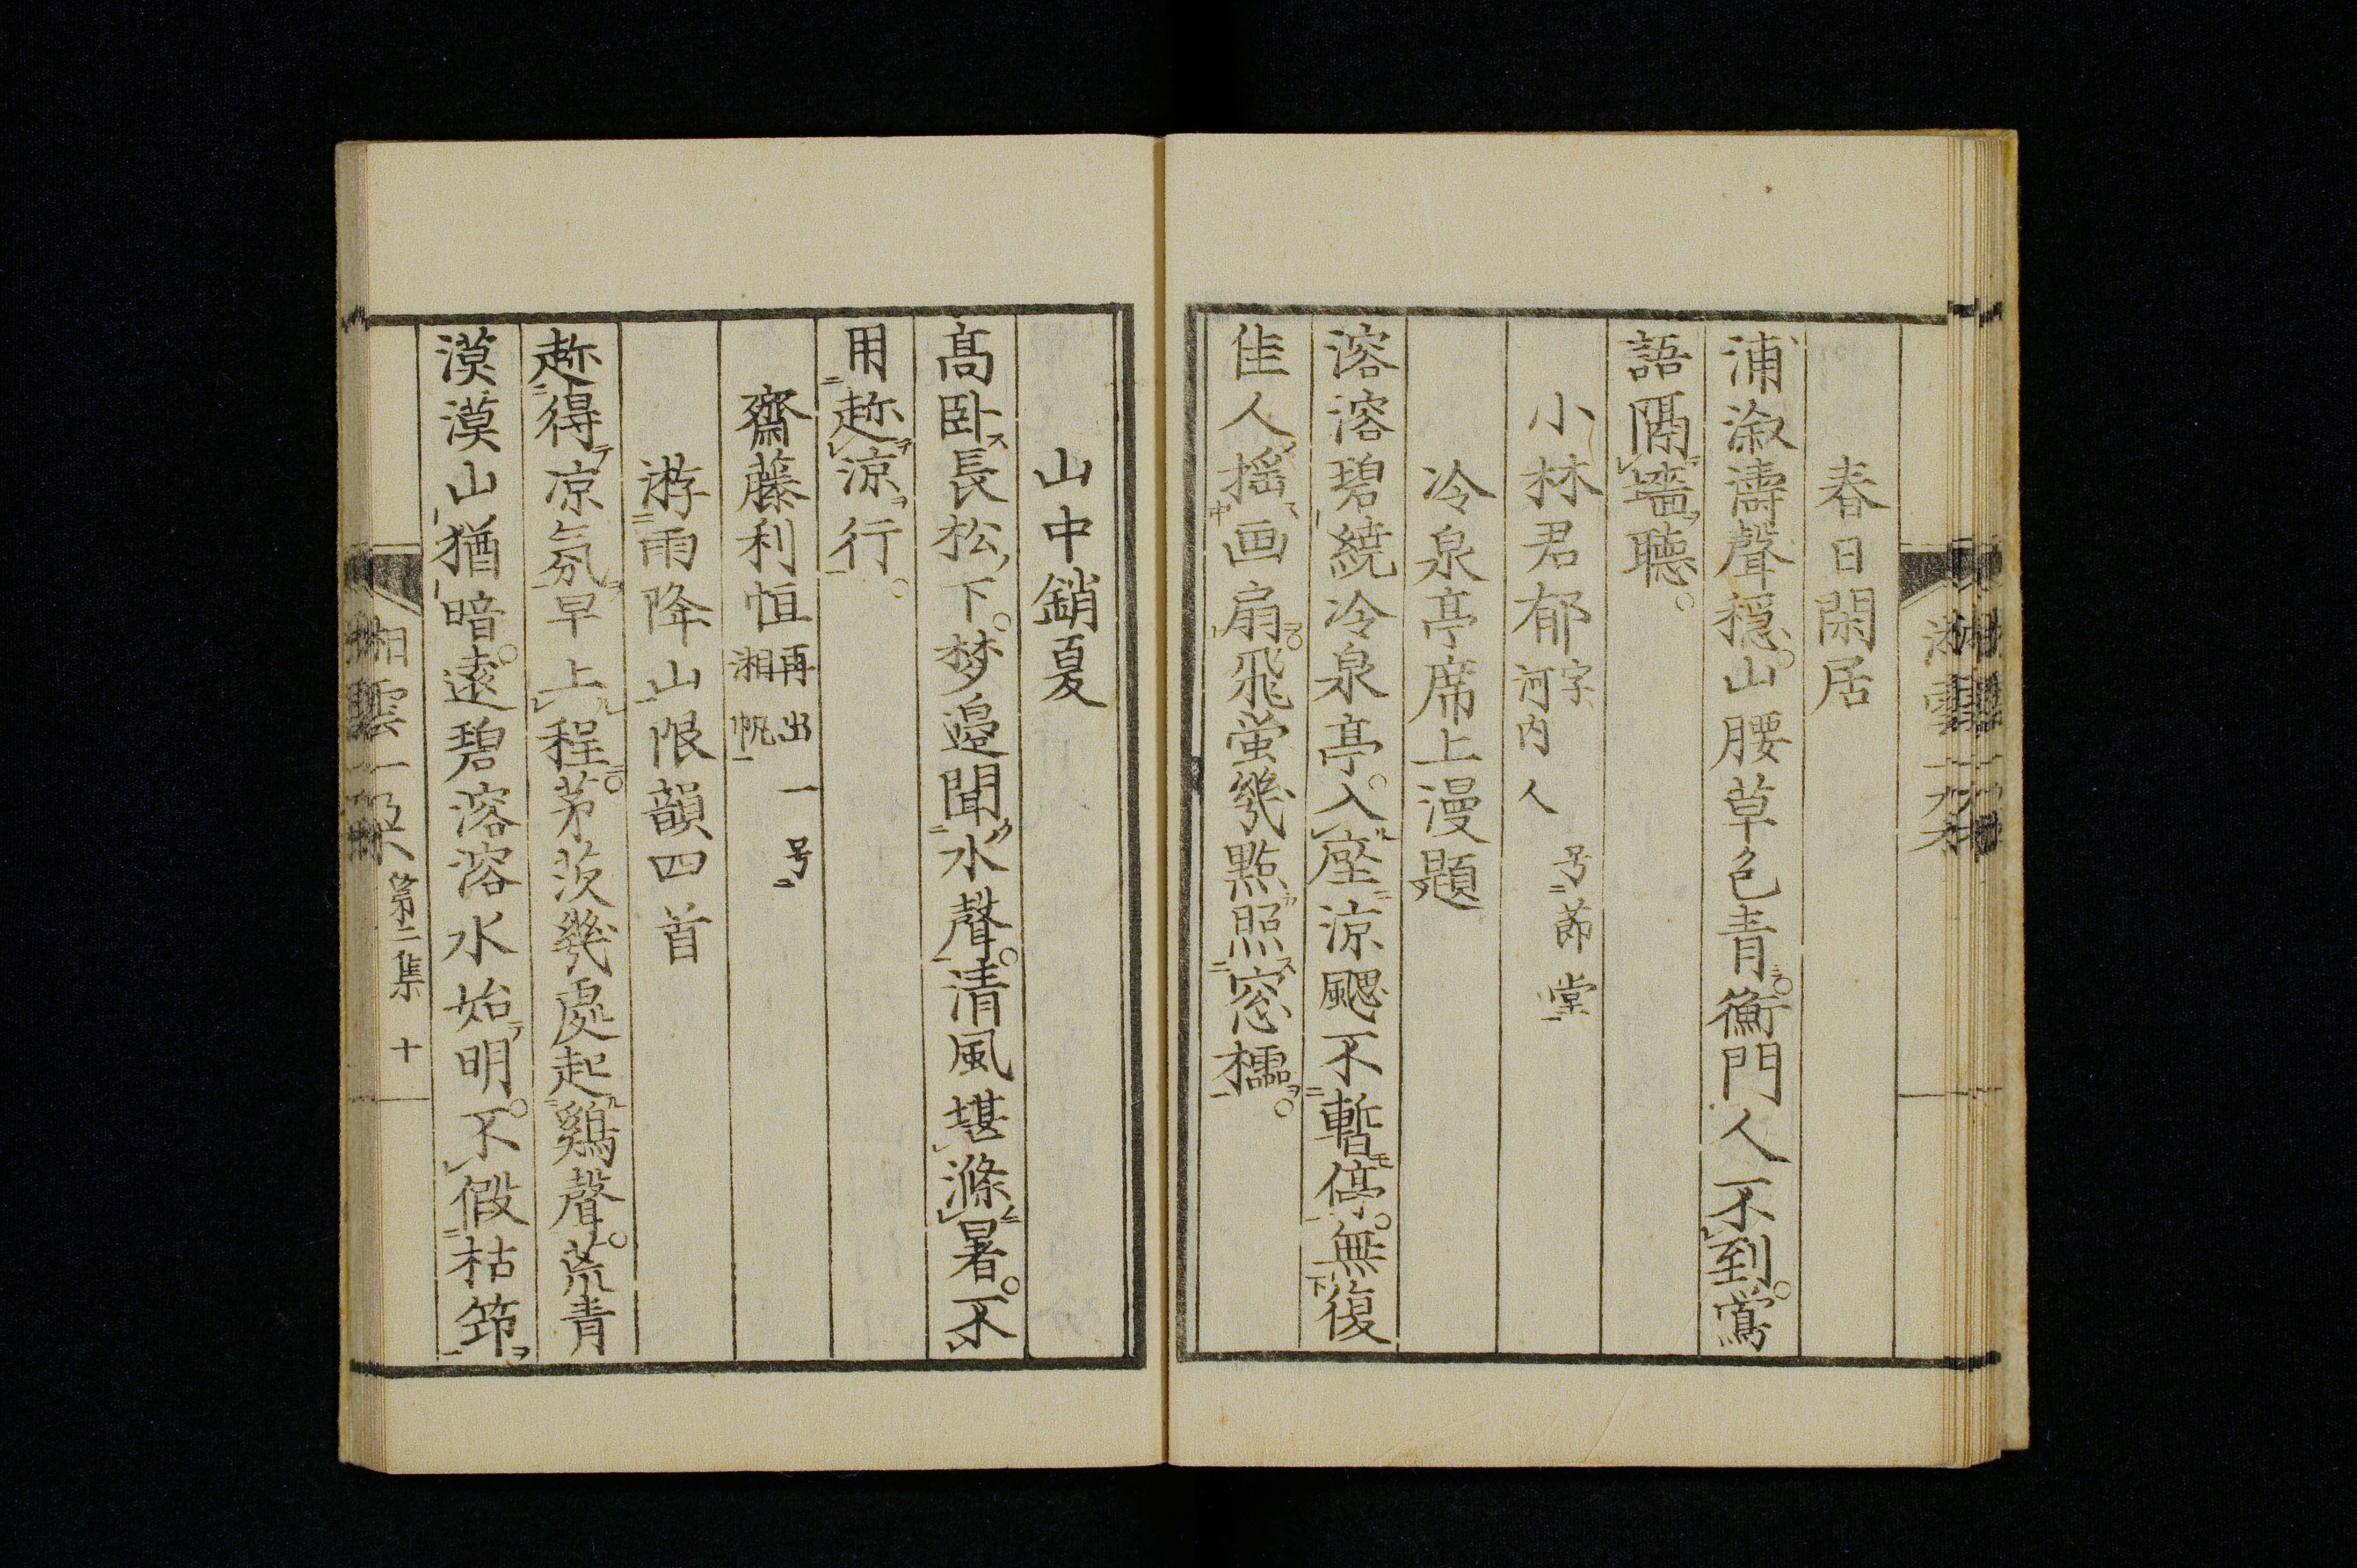 春日閑居
浦漵濤聲穩。山腰草色青。衡門人不到。鶯
語隔墻聽。
小林君郁 字 号節堂 河内人
冷泉亭席上漫題
溶溶碧繞冷泉亭。入座涼颸不暫停。無復
佳人搖画扇。飛螢幾點照窓櫺。
山中銷夏
髙臥長松下。梦邉聞水聲。清風堪滌暑。不
用趂涼行。
齋藤利恒 再出一号 湘帆
游雨降山限韻四首
趂得凉氛早上程。茅茨幾處起鷄聲。荒青
漠漠山猶暗。遠碧溶溶水始明。不假枯筇
湘雲一朶 第二集 十